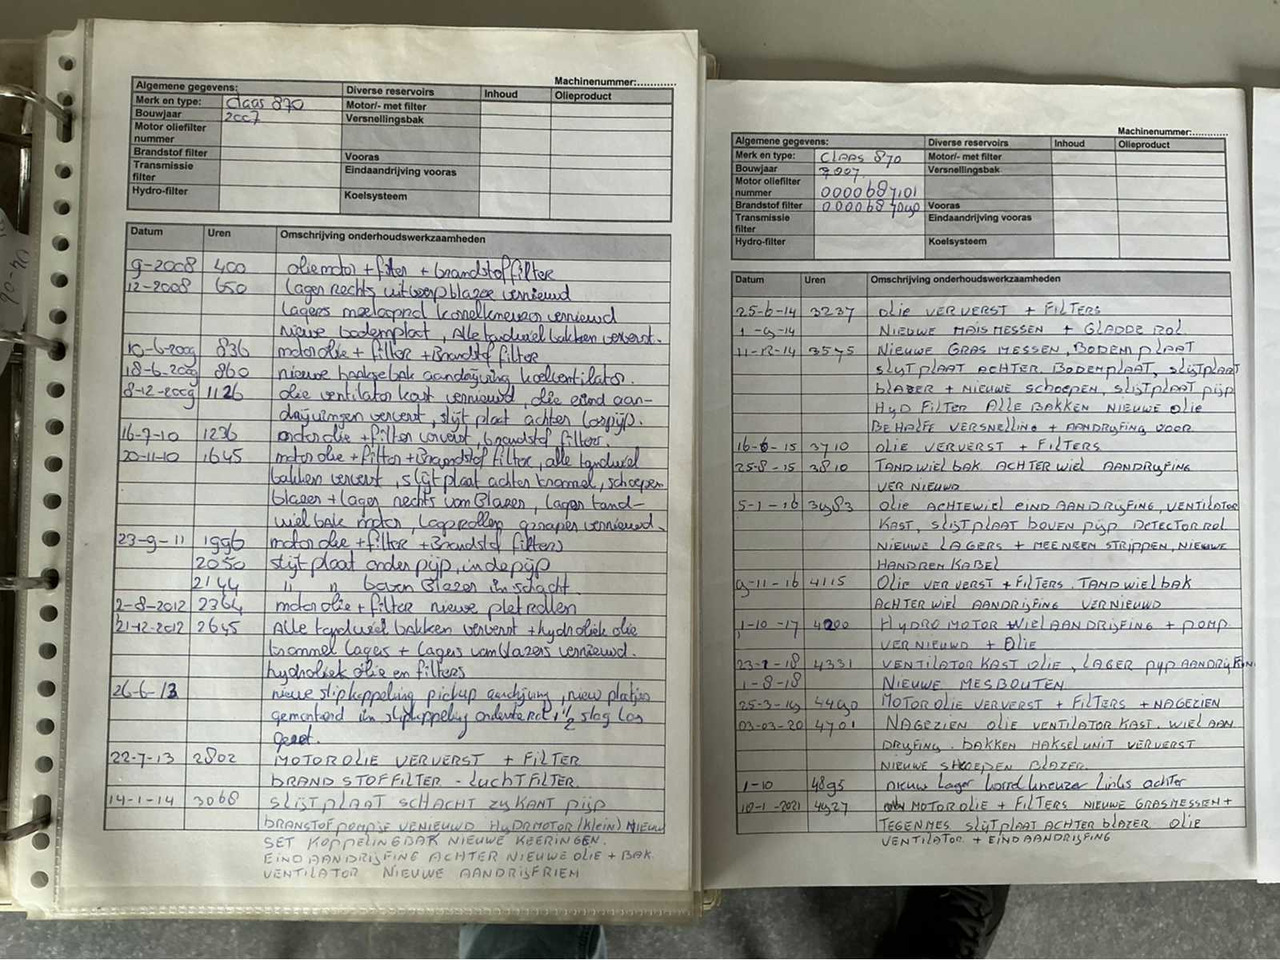 Machinenummer:............
Algemene gegevens: Diverse reservoirs Inhoud Olieproduct
Merk en type: Claas 870 Motor/- met filter
Bouwjaar 2007 Versnellingsbak
Motor oliefilter nummer
Brandstof filter Vooras
Transmissie filter Eindaandrijving vooras
Hydro-filter Koelsysteem
Datum Uren Omschrijving onderhoudswerkzaamheden
9-2008 400 oliemotor + filter + brandstoffilter
12-2008 650 lager rechts uitwerpblazer vernieuwd
lagers meelopend korrelkneuzer vernieuwd
nieuwe bodemplaat, Alle tandwielbakken ververst.
10-6-2009 836 motorolie + filter + Brandstof filter
18-6-2009 860 nieuwe haaksebak aandrijving koelventilator.
8-12-2009 1126 olie ventilator kast vernieuwd, olie eind aan-
drijvingen ververst, slijt plaat achter losspijp.
16-7-10 1236 motorolie + filter ververst, brandstof filters.
20-11-10 1645 motorolie + filter + Brandstof filter, alle tandwiel
bakken ververst, slijt plaat achter trommel, schoepen
blazer + lager rechts van Blazer, lager tand-
wiel bak motor, vernieuwd.
23-9-11 1996 motorolie + filter + Brandstof filters
2050 slijt plaat onder pijp, in de pijp
2144 " " boven Blazer in schacht
2-8-2012 2364 motorolie + filter nieuwe pletrollen
21-12-2012 2645 Alle tandwiel bakken ververst + hydroliek olie
trommel lagers + lagers van blazers vernieuwd.
hydroliek olie en filters
26-6-13 nieuwe slipkoppeling pickup aandrijving, nieuw platjes
gemonteerd in slipkoppeling 1 1/2 slag los
gezet.
22-7-13 2802 MOTOROLIE VERVERST + FILTER
BRANDSTOFFILTER - LUCHTFILTER.
14-1-14 3068 SLIJTPLAAT SCHACHT ZIJKANT PIJP
BRANSTOFPOMPJE VENIEUWD HYDRMOTOR (KLEIN) NIEUW
SET KOPPELINGBAK NIEUWE KEERINGEN.
EINDAANDRIJFING ACHTER NIEUWE OLIE + BAK
VENTILATOR NIEUWE AANDRIJFRIEM
Machinenummer:............
Algemene gegevens: Diverse reservoirs Inhoud Olieproduct
Merk en type: CLAAS 870 Motor/- met filter
Bouwjaar 2007 Versnellingsbak
Motor oliefilter nummer 0000687101
Brandstof filter 0000687090 Vooras
Transmissie filter Eindaandrijving vooras
Hydro-filter Koelsysteem
Datum Uren Omschrijving onderhoudswerkzaamheden
25-6-14 3237 OLIE VERVERST + FILTERS
1-9-14 NIEUWE MAISMESSEN + GLADDE ROL
11-12-14 3575 NIEUWE GRAS MESSEN, BODEMPLAAT
SLIJTPLAAT ACHTER BODEMPLAAT, SLIJTPLAAT
BLAZER + NIEUWE SCHOEPEN, SLIJTPLAAT PIJP
HYD FILTER ALLE BAKKEN NIEUWE OLIE
BEHALFE VERSNELLING + AANDRIJFING VOOR
16-6-15 3710 OLIE VERVERST + FILTERS
25-8-15 3810 TANDWIEL BAK ACHTER WIEL AANDRIJFING
VERNIEUWD
5-1-16 3983 OLIE ACHTEWIEL EIND AANDRIJFING, VENTILATOR
KAST, SLIJTPLAAT BOVEN PIJP DETECTOR ROL
NIEUWE LAGERS + MEENEEM STRIPPEN, NIEUWE
HANDREM KABEL
9-11-16 4115 OLIE VERVERST + FILTERS. TANDWIELBAK
ACHTER WIEL AANDRIJFING VERNIEUWD
1-10-17 4200 HYDRO MOTOR WIELAANDRIJFING + POMP
VERNIEUWD + OLIE
23-2-18 4331 VENTILATOR KAST OLIE, LAGER PIJP AANDRIJFING
1-8-18 NIEUWE MESBOUTEN
25-3-19 4490 MOTOROLIE VERVERST + FILTERS + NAGEZIEN
03-03-20 4701 NAGEZIEN OLIE VENTILATOR KAST. WIEL AAN
DRIJFING. BAKKEN HAKSELUNIT VERVERST
NIEUWE SHOEPEN BLAZER.
1-10 4895 nieuw lager korrelkneuzer links achter
10-1-2021 4927 MOTOROLIE + FILTERS NIEUWE GRASMESSEN +
TEGENMES SLIJTPLAAT ACHTER BLAZER OLIE
VENTILATOR + EINDAANDRIJFING